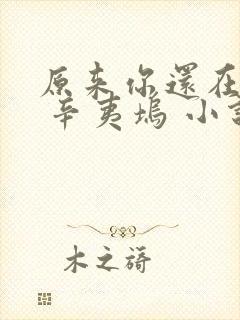 原来你還在
辛夷塢 小說
木之裿